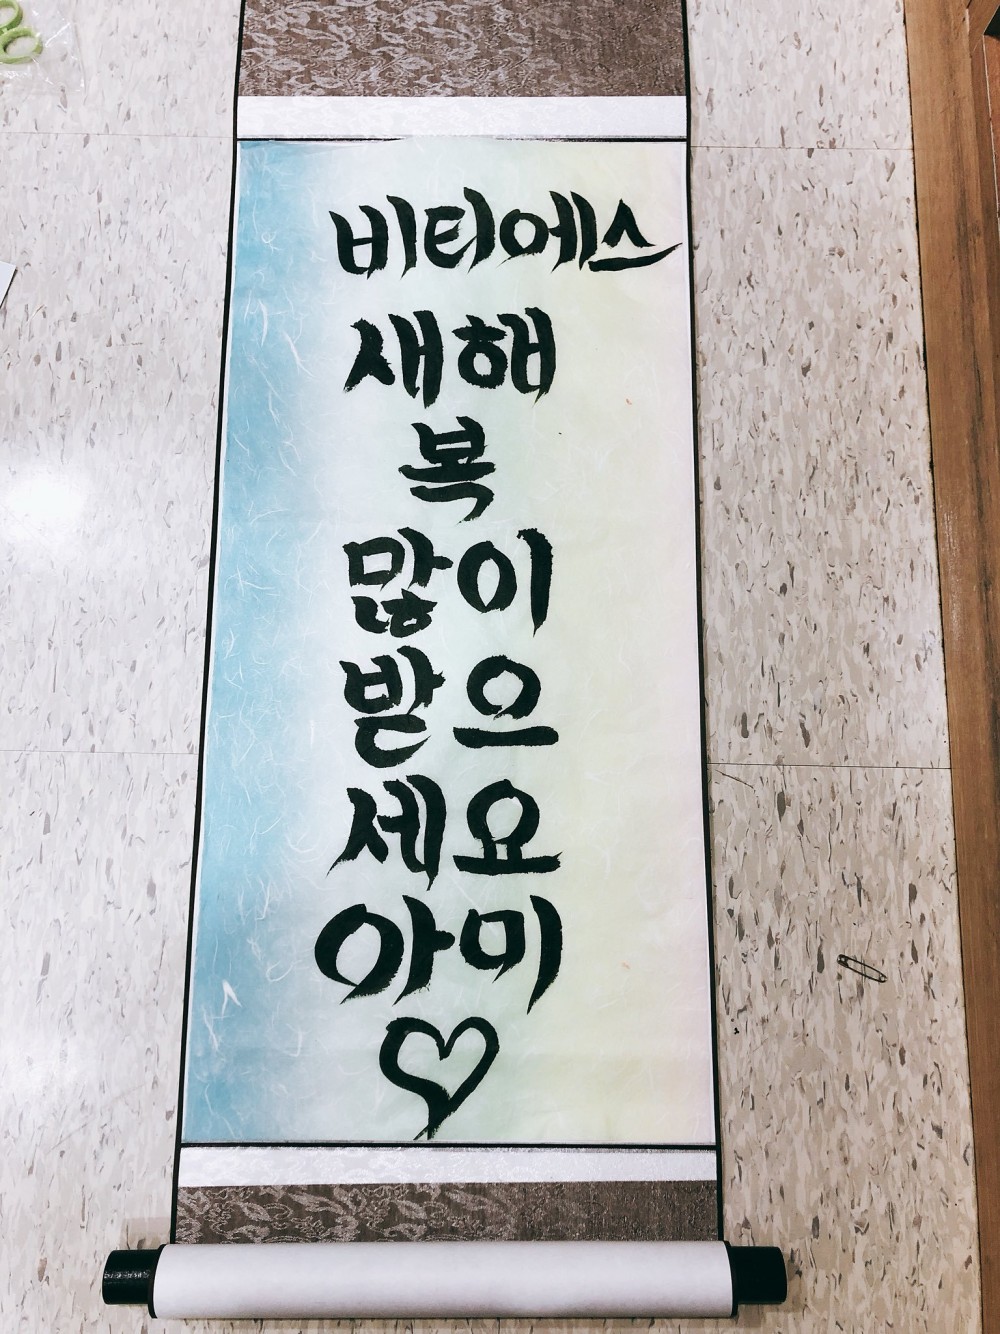 비티에스
새해
복
많이
받으
세요
아미
♡